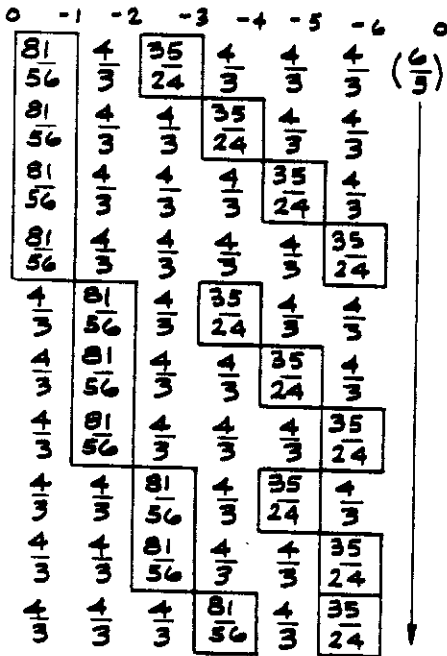 0 -1 -2 -3 -4 -5 -6 0
81/56 4/3 35/24 4/3 4/3 4/3 (6/5)
81/56 4/3 4/3 35/24 4/3 4/3
81/56 4/3 4/3 4/3 35/24 4/3
81/56 4/3 4/3 4/3 4/3 35/24
4/3 81/56 4/3 35/24 4/3 4/3
4/3 81/56 4/3 4/3 35/24 4/3
4/3 81/56 4/3 4/3 4/3 35/24
4/3 4/3 81/56 4/3 35/24 4/3
4/3 4/3 81/56 4/3 4/3 35/24
4/3 4/3 4/3 81/56 4/3 35/24